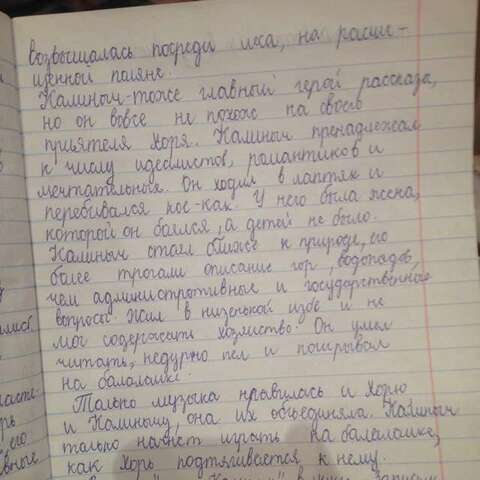 возвышалась посреди леса, на расчи-
щенной поляне.
Калиныч-тоже главный герой рассказа,
но он вовсе не похож на своего
приятеля Хоря. Калиныч пренадлежал
к числу идеалистов, романтиков и
мечтательных. Он ходил в лаптях и
перебивался кое-как. У него была жена,
которой он боялся, а детей не было.
Калиныч стоял ближе к природе, его
более трогали описание гор, водопадов,
чем административные и государственные
вопросы. Жил в низенькой избе и не
мог содержать хозяйство. Он умел
читать, недурно пел и поигрывал
на балалайке.
Только музыка нравилась и Хорю
и Калинычу, она их объединяла. Калиныч
только начнёт играть на балалайке,
как Хорь подтягивается к нему.